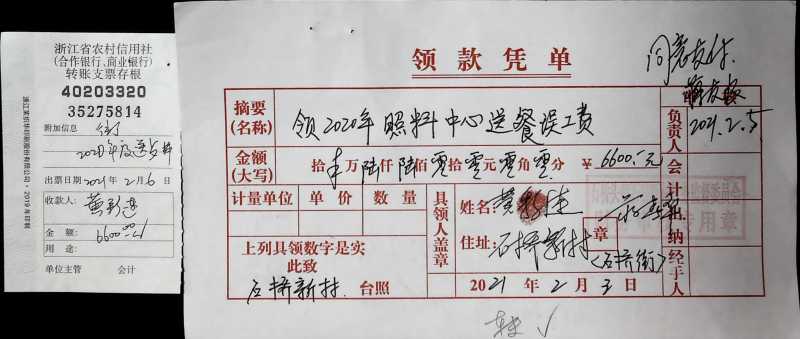 浙江省农村信用社
(合作银行、商业银行)
转账支票存根
40203320
35275814
附加信息
出票日期 2021年2月6日
收款人:
金额: 6600.00
用途:
单位主管 会计
领款凭单
同意支付.
2021.2.5
摘要
(名称)
领2020年照料中心送餐误工费
金额
(大写)
拾 万陆仟陆佰零拾零元零角零分 ¥6600.元
计量单位 单价 数量
具领人盖章
姓名:
住址: 石桥新村 章
(石桥街)
上列具领数字是实
此致
石桥新村. 台照
2021年2月3日
负责人
会计
出纳
经手人